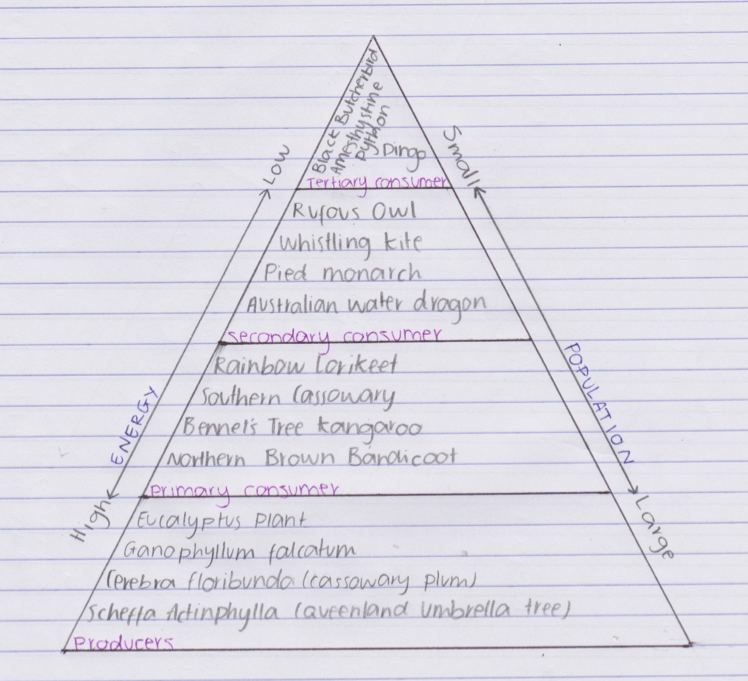 Black Butcherbird
Amesthystine
Python
Dingo
Tertiary consumer
Rufous Owl
Whistling kite
Pied monarch
Australian water dragon
secondary consumer
Rainbow Lorikeet
Southern Cassowary
Bennel's Tree kangaroo
Northern Brown Bandicoot
Primary consumer
Eucalyptus Plant
Ganophyllum falcatum
Cerebra floribunda (cassowary plum)
Scheffa Actinphylla (Queenland Umbrella tree)
Producers
Low
ENERGY
High
Small
POPULATION
Large